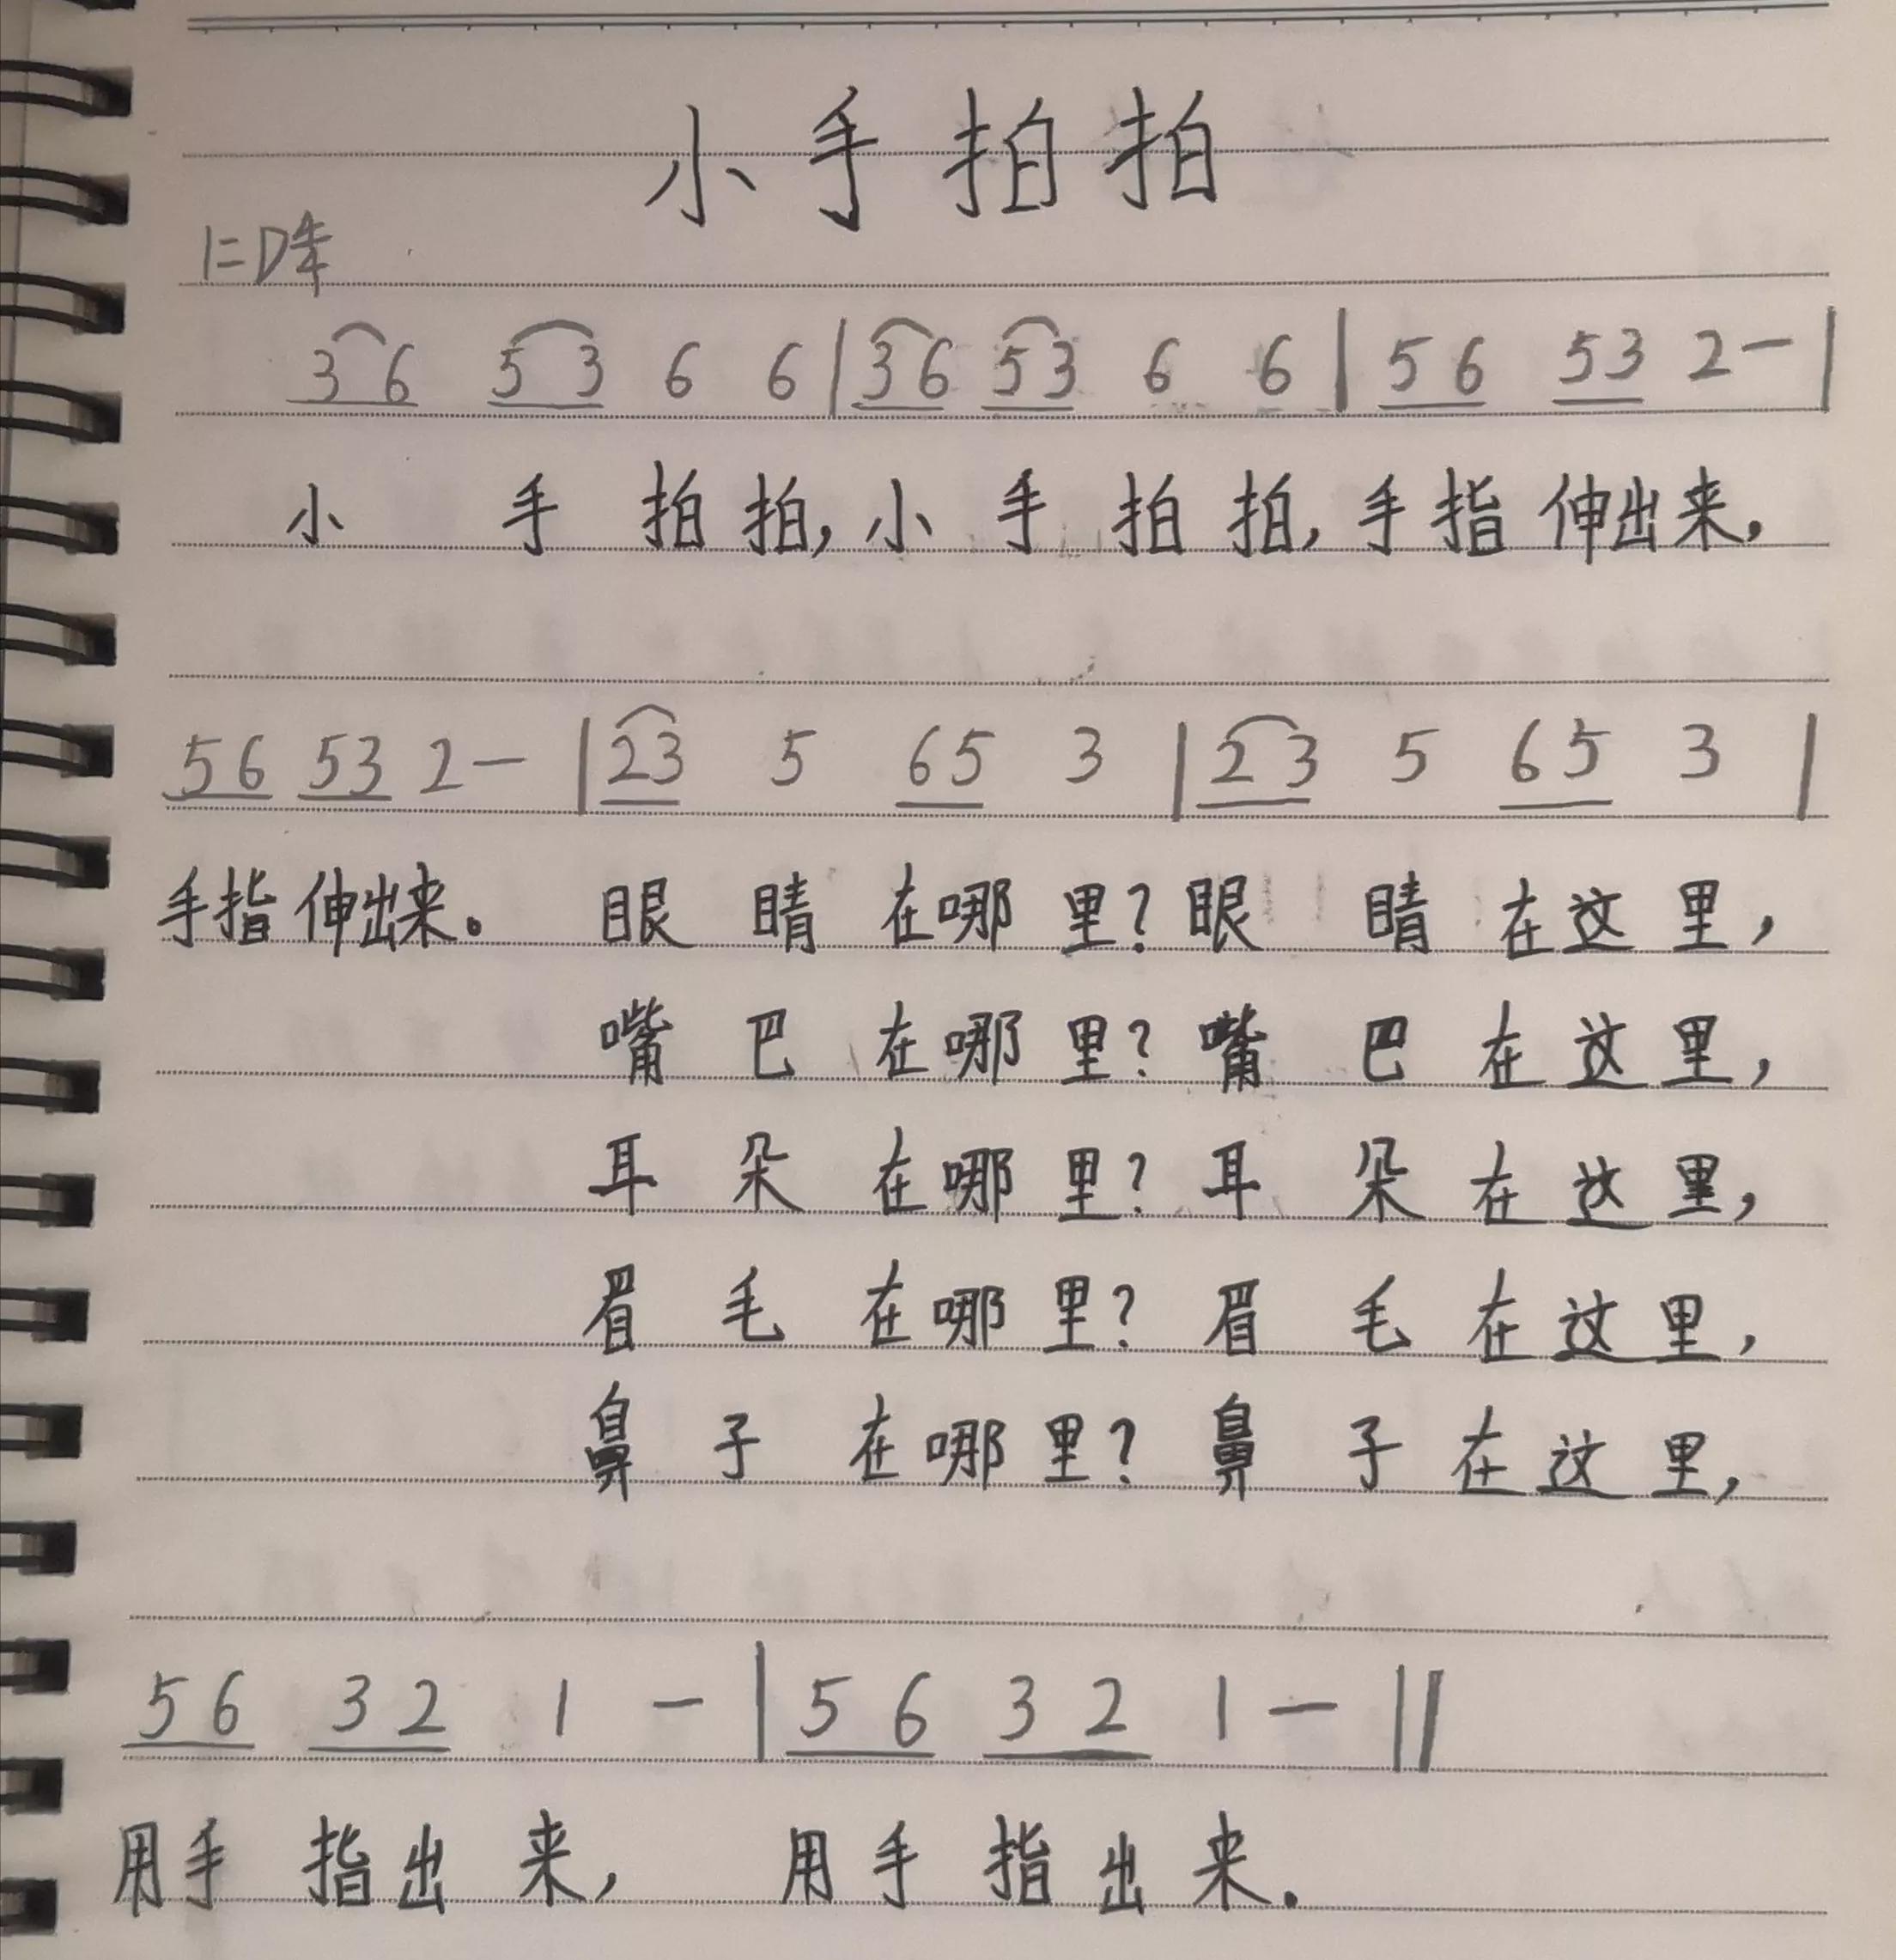 小手拍拍
1=D 4/4
36 53 6 6|36 53 6 6|56 53 2-|
小 手 拍 拍,小 手 拍 拍,手指 伸出来,
56 53 2-|23 5 65 3|23 5 65 3|
手指 伸出来。 眼 睛 在哪 里?眼 睛 在这 里,
嘴 巴 在哪 里?嘴 巴 在这 里,
耳 朵 在哪 里?耳 朵 在这 里,
眉 毛 在哪 里?眉 毛 在这 里,
鼻 子 在哪 里?鼻 子 在这 里,
56 32 1 -|56 32 1-||
用手 指出 来, 用手 指出 来.